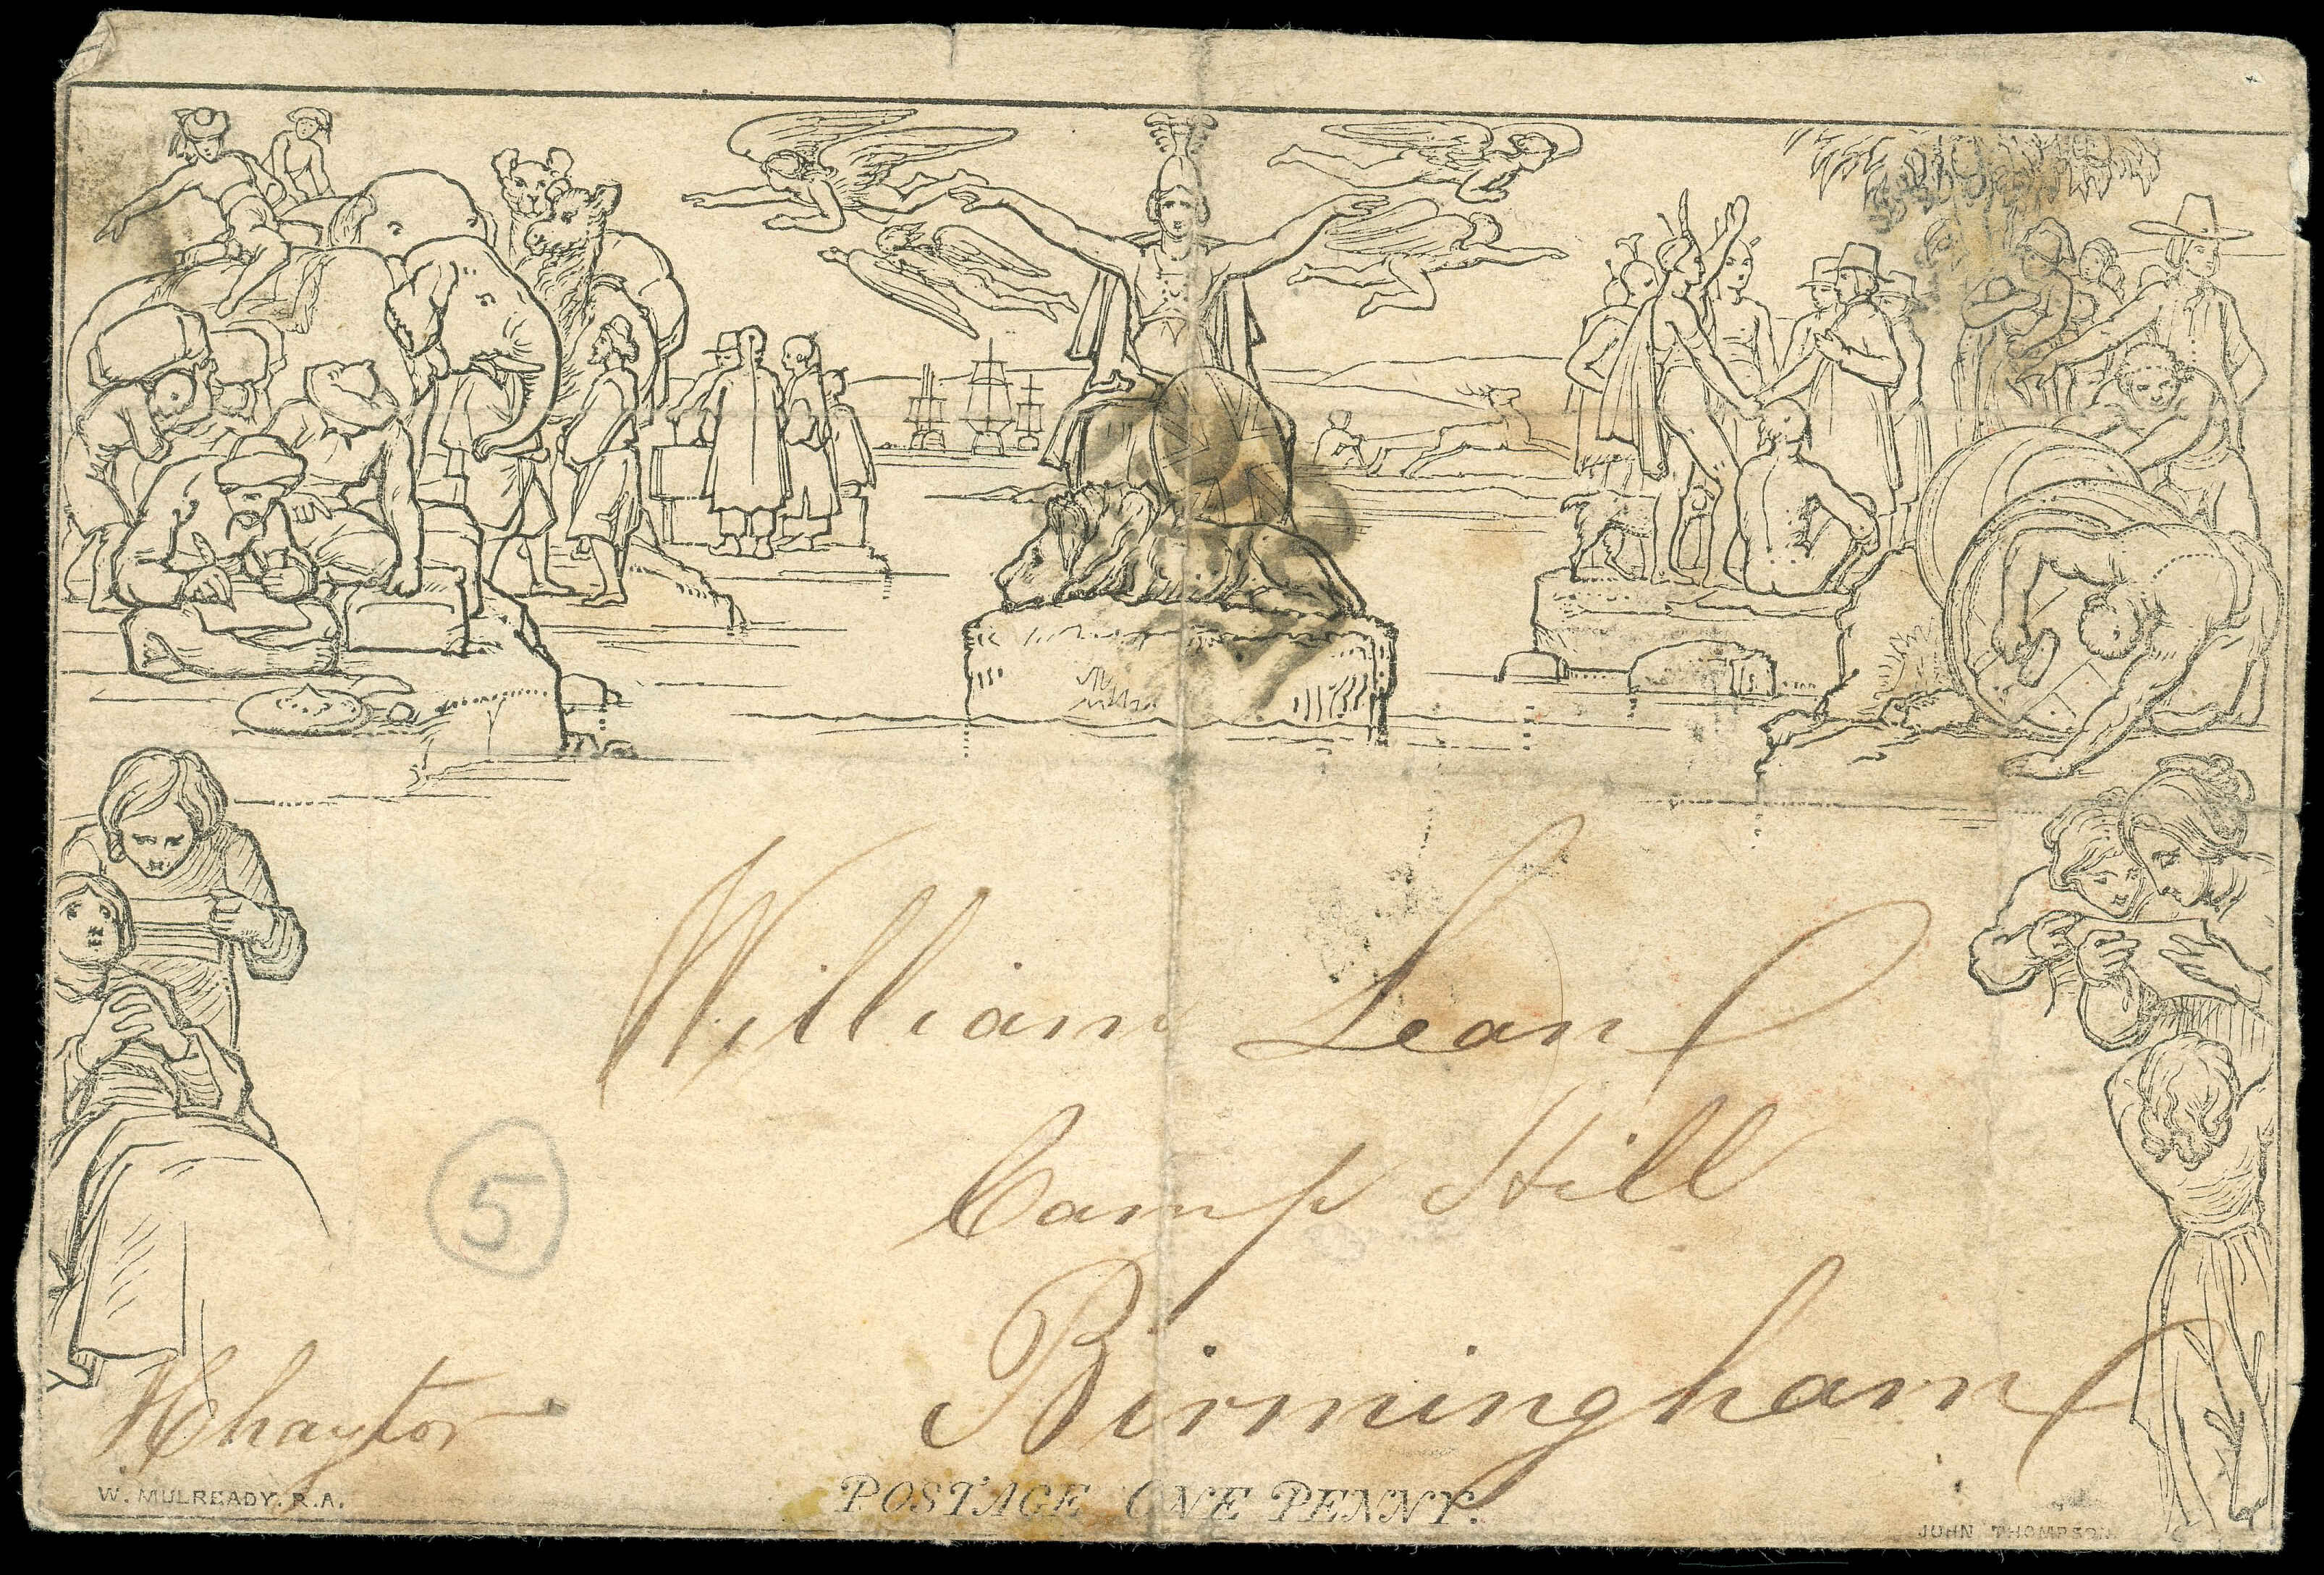 William Lean
Camp Hill
Birmingham
5
W. MULREADY. R.A.
POSTAGE ONE PENNY.
JOHN THOMPSON